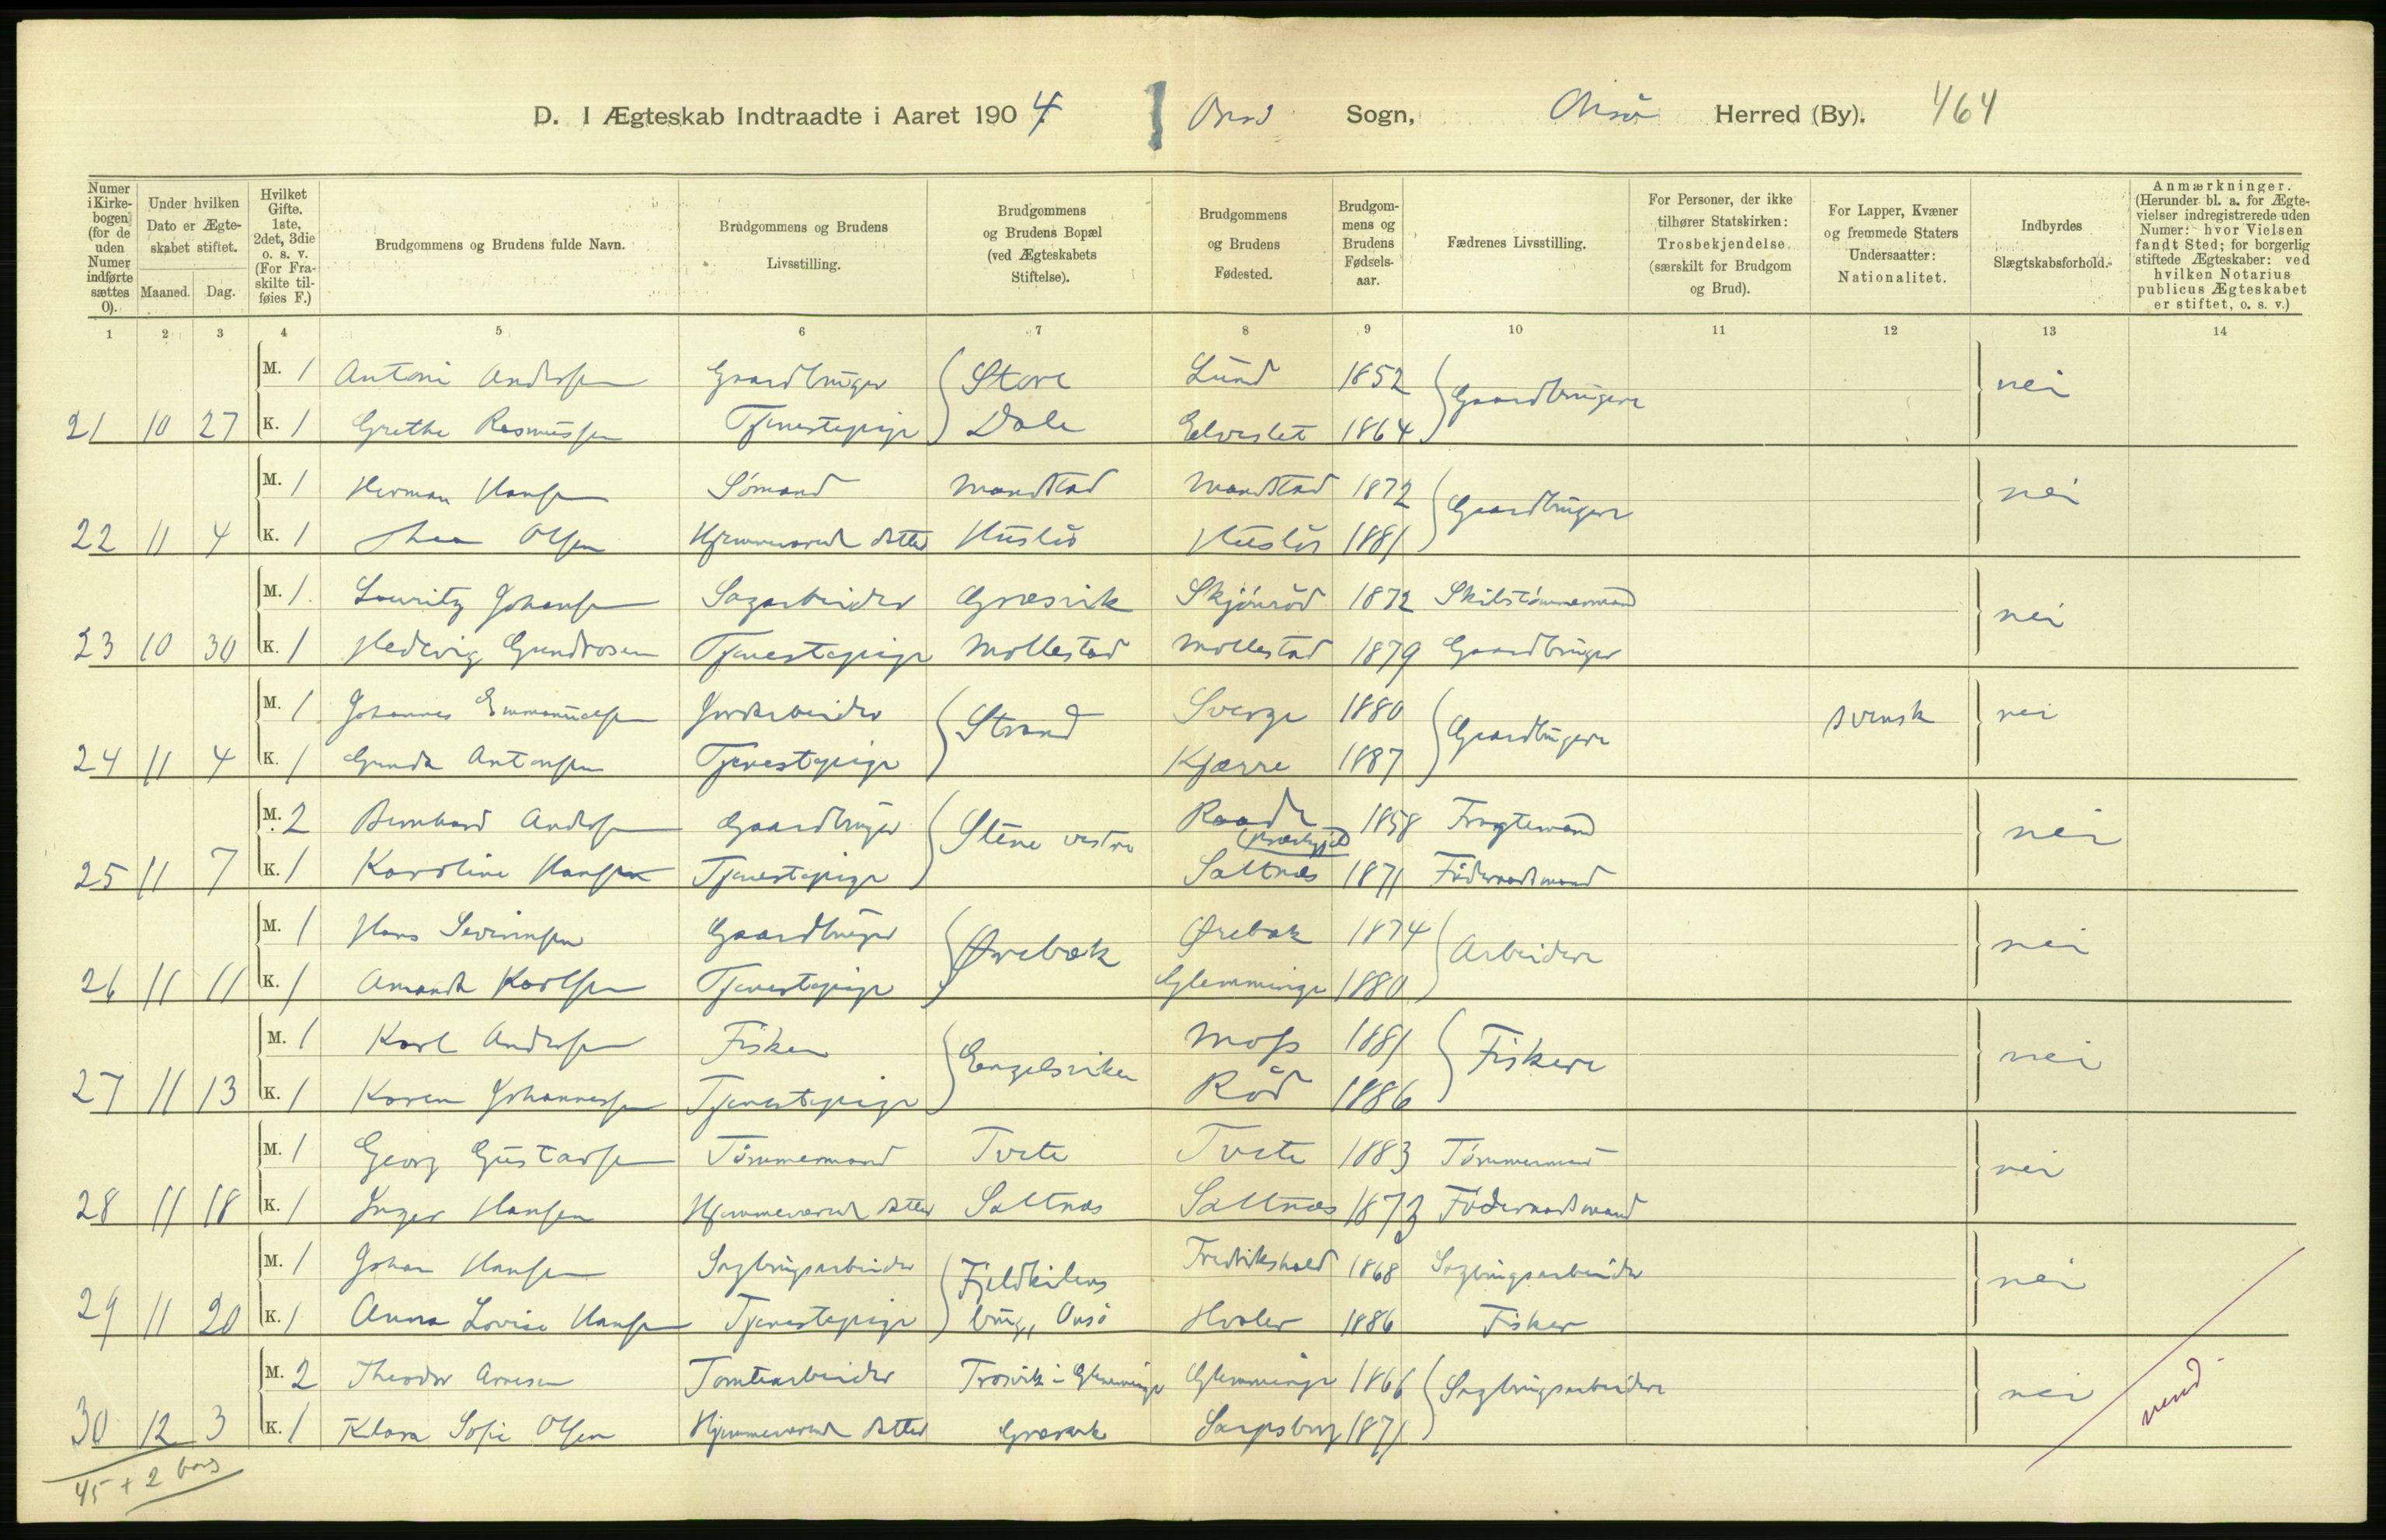 D. I Ægteskab Indtraadte i Aaret 1904. Onsø Sogn, Onsø Herred (By). 464
Numer i Kirkebogen (for de uden Numer indførte sættes 0).
Under hvilken Dato er Ægteskabet stiftet.
Maaned. Dag.
Hvilket Gifte. 1ste, 2det, 3die o. s. v. (For Fraskilte tilføies F.)
Brudgommens og Brudens fulde Navn.
Brudgommens og Brudens Livsstilling.
Brudgommens og Brudens Bopæl (ved Ægteskabets Stiftelse).
Brudgommens og Brudens Fødested.
Brudgommens og Brudens Fødselsaar.
Fædrenes Livsstilling.
For Personer, der ikke tilhører Statskirken: Trosbekjendelse (særskilt for Brudgom og Brud).
For Lapper, Kvæner og fremmede Staters Undersaatter: Nationalitet.
Indbyrdes Slægtskabsforhold.
Anmærkninger. (Herunder bl. a. for Ægtevielser indregistrerede uden Numer: hvor Vielsen fandt Sted; for borgerlig stiftede Ægteskaber: ved hvilken Notarius publicus Ægteskabet er stiftet, o. s. v.)
1 2 3 4 5 6 7 8 9 10 11 12 13 14
M. 1 Antoni Andersen Gaardbruger Store Lund 1852 Gaardbrugere nei
21 10 27 K. 1 Grethe Rasmussen Tjenestepige Dale Elveslet 1864
M. 1 Herman Hansen Sömand Mandstad Mandstad 1872 Gaardbrugere nei
22 11 4 K. 1 Thea Olsen Hjemmeværende datter Huslö Huslös 1881
M. 1 Lauritz Johansen Sagarbeider Græsvik Skjönröd 1872 Skibstömmermand nei
23 10 30 K. 1 Hedevig Gundrosen Tjenestepige Mollestad Mollestad 1879 Gaardbruger
M. 1 Johannes Emmanuelsen Jordarbeider Strand Sverge 1880 Gaardbrugere svensk nei
24 11 4 K. 1 Gunda Antonsen Tjenestepige Kjærre 1887
M. 2 Bernhard Andersen Gaardbruger Stene vestre Raade 1858 Fragtemand nei
præstegjeld
25 11 7 K. 1 Karoline Hansen Tjenestepige Saltnæs 1871 Föderaadsmand
M. 1 Hans Severinsen Gaardbruger Ørebæk Ørebæk 1874 Arbeidere nei
26 11 11 K. 1 Amanda Karlsen Tjenestepige Glemminge 1880
M. 1 Karl Andersen Fisker Engelsviken Moss 1881 Fiskere nei
27 11 13 K. 1 Karen Johannessen Tjenestepige Röd 1886
M. 1 Georg Gustavsen Tömmermand Tvete Tvete 1883 Tömmermand nei
28 11 18 K. 1 Inger Hansen Hjemmeværende datter Saltnæs Saltnæs 1873 Föderaadsmand
M. 1 Johan Hansen Sagbrugsarbeider Fjeldkilens Fredrikshald 1868 Sagbrugsarbeider nei
29 11 20 K. 1 Anna Lovise Hansen Tjenestepige brug, Onsö Hvaler 1886 Fisker
M. 2 Theodor Arnesen Tomtearbeider Trosvik i Glemminge Glemminge 1866 Sagbrugsarbeidere nei
30 12 3 K. 1 Klara Sofie Olsen Hjemmeværende datter Græsvik Sarpsborg 1871
45 + 2 borg